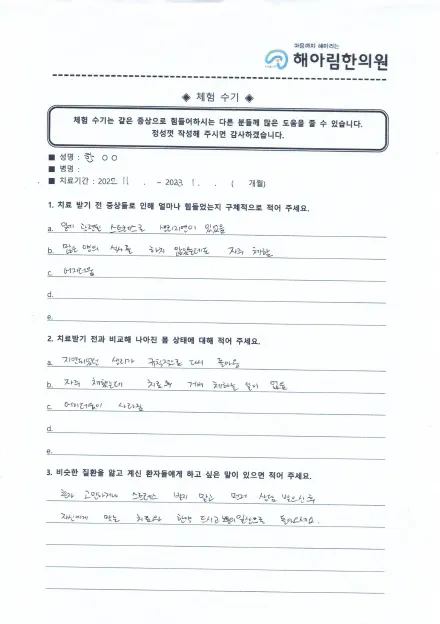 마음까지 헤아리는
해아림한의원
◈ 체험 수기 ◈
체험 수기는 같은 증상으로 힘들어하시는 다른 분들께 많은 도움을 줄 수 있습니다.
정성껏 작성해 주시면 감사하겠습니다.
■ 성명 : 한 ○○
■ 병명 :
■ 치료기간 : 2022. 11 . - 2023. 1 . ( 개월)
1. 치료 받기 전 증상들로 인해 얼마나 힘들었는지 구체적으로 적어 주세요.
a. 관련된 스트레스로 생리지연이 있었음
b. 많은 양의 식사를 하지 않았는데도 자주 체함
c. 어지러움
d.
e.
2. 치료받기 전과 비교해 나아진 몸 상태에 대해 적어 주세요.
a. 지연되었던 생리가 규칙적으로 다시 돌아옴
b. 자주 체했는데 치료후 거의 체하는 일이 없음
c. 어지러움이 사라짐
d.
e.
3. 비슷한 질환을 앓고 계신 환자들에게 하고 싶은 말이 있으면 적어 주세요.
혼자 고민하거나 스트레스 받지 말고 먼저 상담 받으신 후
자신에게 맞는 치료와 한약 드시고 일상으로 돌아오세요.